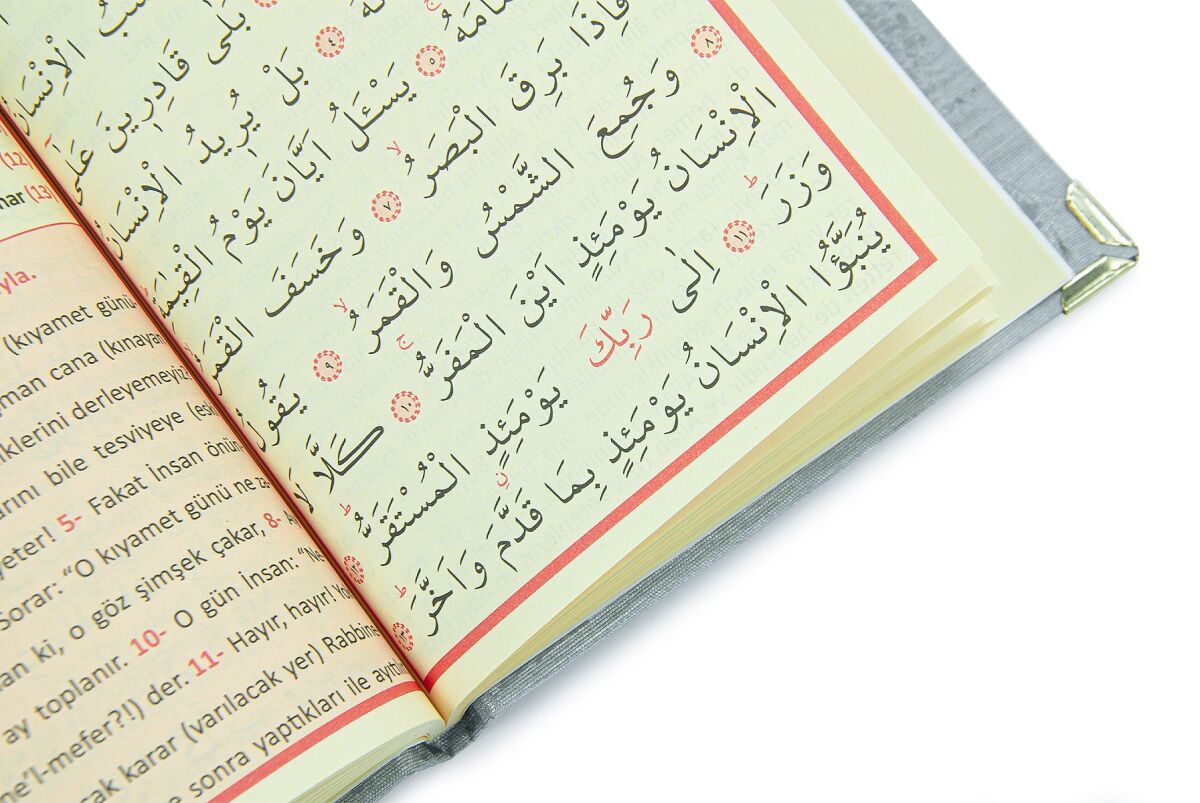 الْاِنْسَانُ
بَلٰى قَادِرٖينَ عَلٰٓى
٤ بَلْ يُرٖيدُ الْاِنْسَانُ
٥ يَسْـَٔلُ اَيَّانَ يَوْمُ الْقِيٰمَةِ
فَاِذَا بَرِقَ الْبَصَرُ ٧ وَخَسَفَ الْقَمَرُ
٨ وَجُمِعَ الشَّمْسُ وَالْقَمَرُ ٩ يَقُولُ
الْاِنْسَانُ يَوْمَئِذٍ اَيْنَ الْمَفَرُّ ١٠ كَلَّا لَا
وَزَرَ ١١ اِلٰى رَبِّكَ يَوْمَئِذٍ الْمُسْتَقَرُّ ١٢
يُنَبَّؤُا الْاِنْسَانُ يَوْمَئِذٍ بِمَا قَدَّمَ وَاَخَّرَ ١٣
(12)
nar (13)
yla.
(kıyamet günü-
man cana (kınayan
iklerini derleyemeyiz
arını bile tesviyeye (es
yeter! 5- Fakat İnsan önün-
Sorar: “O kıyamet günü ne za-
an ki, o göz şimşek çakar, 8- A
ay toplanır. 10- O gün İnsan: “Ne-
ne’l-mefer?!) der. 11- Hayır, hayır! Yo
cak karar (varılacak yer) Rabbine-
e sonra yaptıkları ile ayıtılır